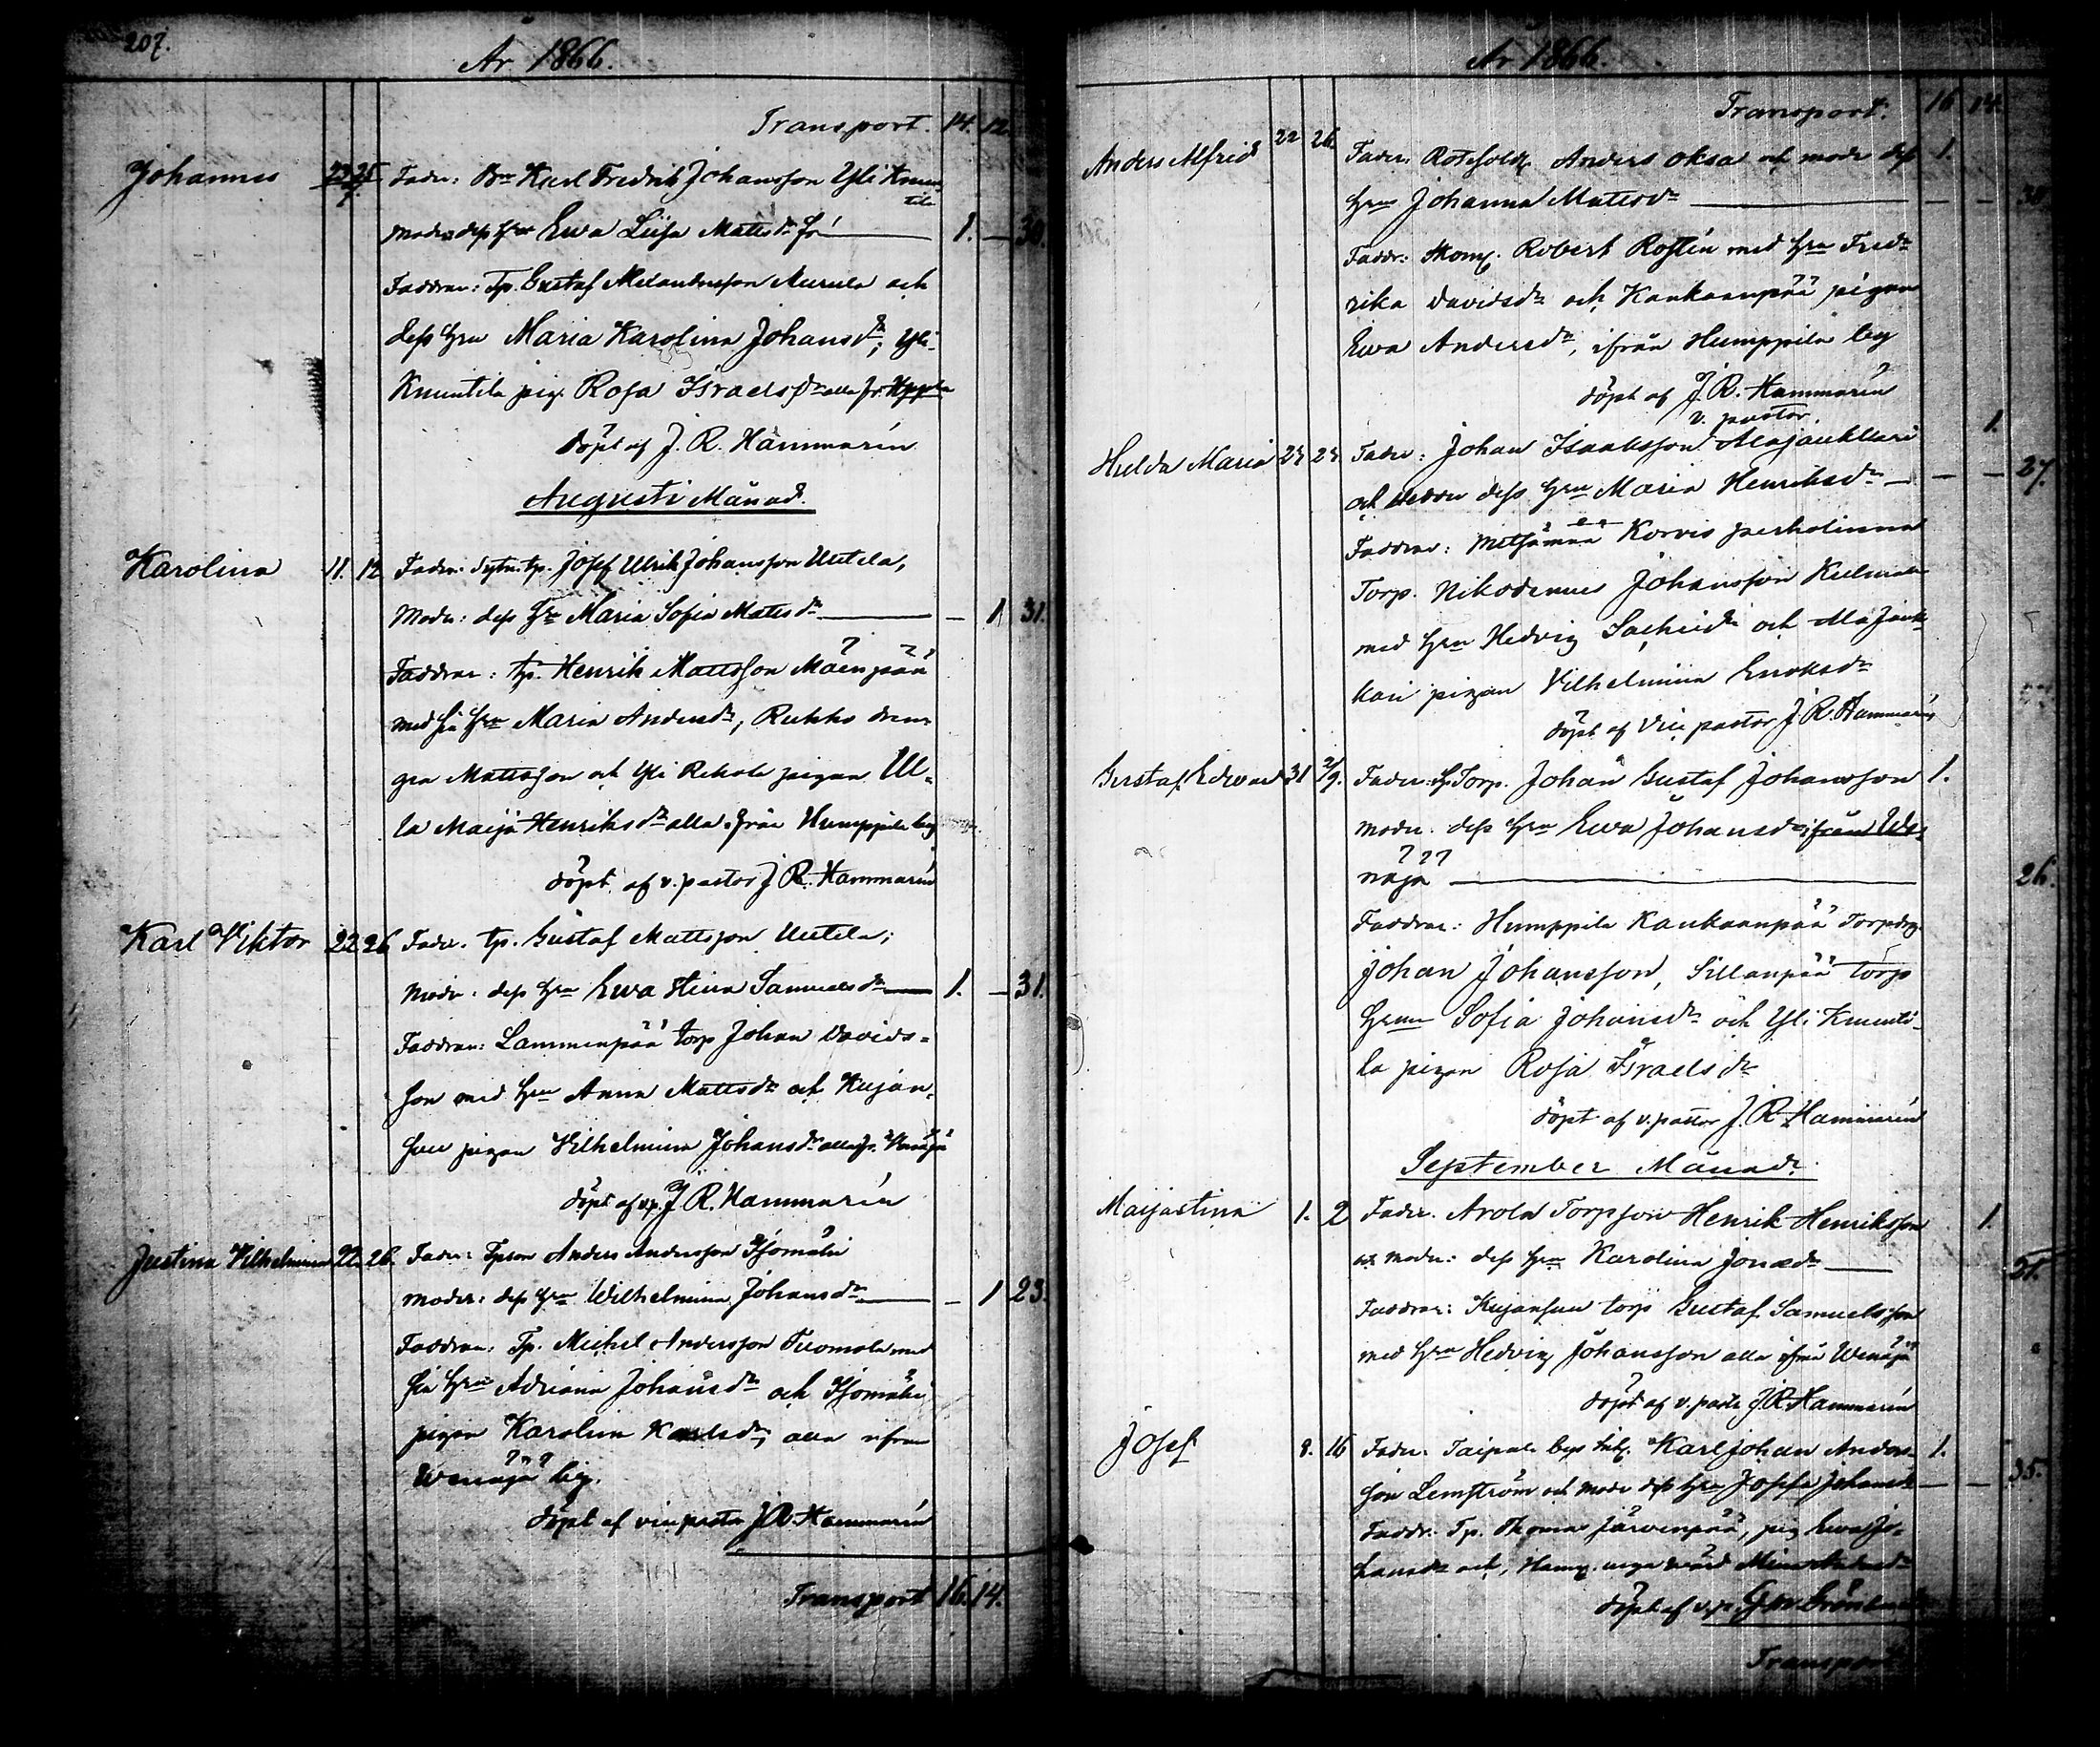 207.
År 1866.
Transport. 14. 12.
Johannes 23 25 Fader: Bn Karl Fredrik Johansson Yli Knuu
tila
Moder dess Hru Ewa Lisa Mattsdr 1. — 30.
Faddrar: Tp. Gustaf Melandersson Murula och
dess hru Maria Karolina Johansdr; Yli
Knuutila pig. Rosa Israelsdr alla fr. Hppla
döpt af J. R. Hammarén
Augusti Månad.
Karolina 11. 12 Fader: Sytn. tp. Josef Ulrik Johansson Uutela,
Moder: dess Hru Maria Sofia Mattsdr — 1 31.
Faddrar: tp. Henrik Mattsson Mäenpää
med sin Hru Maria Andersdr, Rukko dren-
gen Mattsson och Yli Rekola pigan Ul-
la Maija Henriksdr alla från Humppila by
döpt af v. pastor J. R. Hammarén
Karl Viktor 22 26 Fader. tp. Gustaf Mattsson Uutela;
Moder: dess hru Ewa Stina Samuelsdr 1. — 31.
Faddrar: Lammenpää torp Johan Davids-
son med hru Anna Mattsdr och Kujan-
suu pigan Vilhelmina Johansdr alla fr. Wenäjä
döpt af v.p. J. R. Hammarén
Justina Vilhelmina 22. 26. Fader: Tpson Anders Andersson Isomäki
moder: dess hru Wilhelmina Johansdr — 1 23.
Faddrar: Tp. Michel Andersson Tuomola med
sin hru Adriana Johansdr och Isomäki
pigan Karolina Karlsdr, alla ifrån
Wenäjä by.
döpt af vice pastor J. R. Hammarén
Transport 16. 14.
År 1866.
Transport. 16 14.
Anders Alfrid 22 26. Fader: Rotesold. Anders Oksa och moder dess 1.
hru Johanna Mattsdr — —
Faddr: Hom. Robert Rostén med hru Fred-
rika Davidsdr och Kankaanpää pigan
Ewa Andersdr, ifrån Humppila by
döpt af J. R. Hammarén
v. pastor
Hulda Maria 24 24 Fader: Johan Isaaksson Alajaukkari 1.
och Moder dess hru Maria Henriksdr — — 27.
Faddrar: Metsämaa Korvis
Torp. Nikodemus Johansson
med hru Hedvig och Alajauk-
kari pigan Vilhelmina Enoksdr
döpt af Vice pastor J. R. Hammarén
Gustaf Edvard 31 2/9. Fader: Torp. Johan Gustaf Johansson 1.
moder: dess hru Ewa Johansdr; ifrån We-
näjä 26.
Faddrar: Humppila Kankaanpää Torpdrg.
Johan Johansson, Sillanpää torp
hru Sofia Johansdr och Yli Knuuti-
la pigan Rosa Israelsdr
döpt af v. pastor J. R. Hammarén
September Månad.
Maijastina 1. 2 Fader. Arola Torpson Henrik Henriksson 1.
och Moder: dess hru Karolina Jonasdr
Faddrar: Kujansuu torp Gustaf Samuelsson
med hru Hedvig Johansson alla ifrån Wenäjä
döpt af v. past. J. R. Hammarén
Josef 8. 16 Fader. Taipale bys Karl Johan Anders- 1.
son Lemström och moder dess hru Josefa Johansdr — — 35.
Faddr. Tp. Thomas Järwenpää, pig Ewa Jo-
hansdr och,
döpt af v.p.
Transport